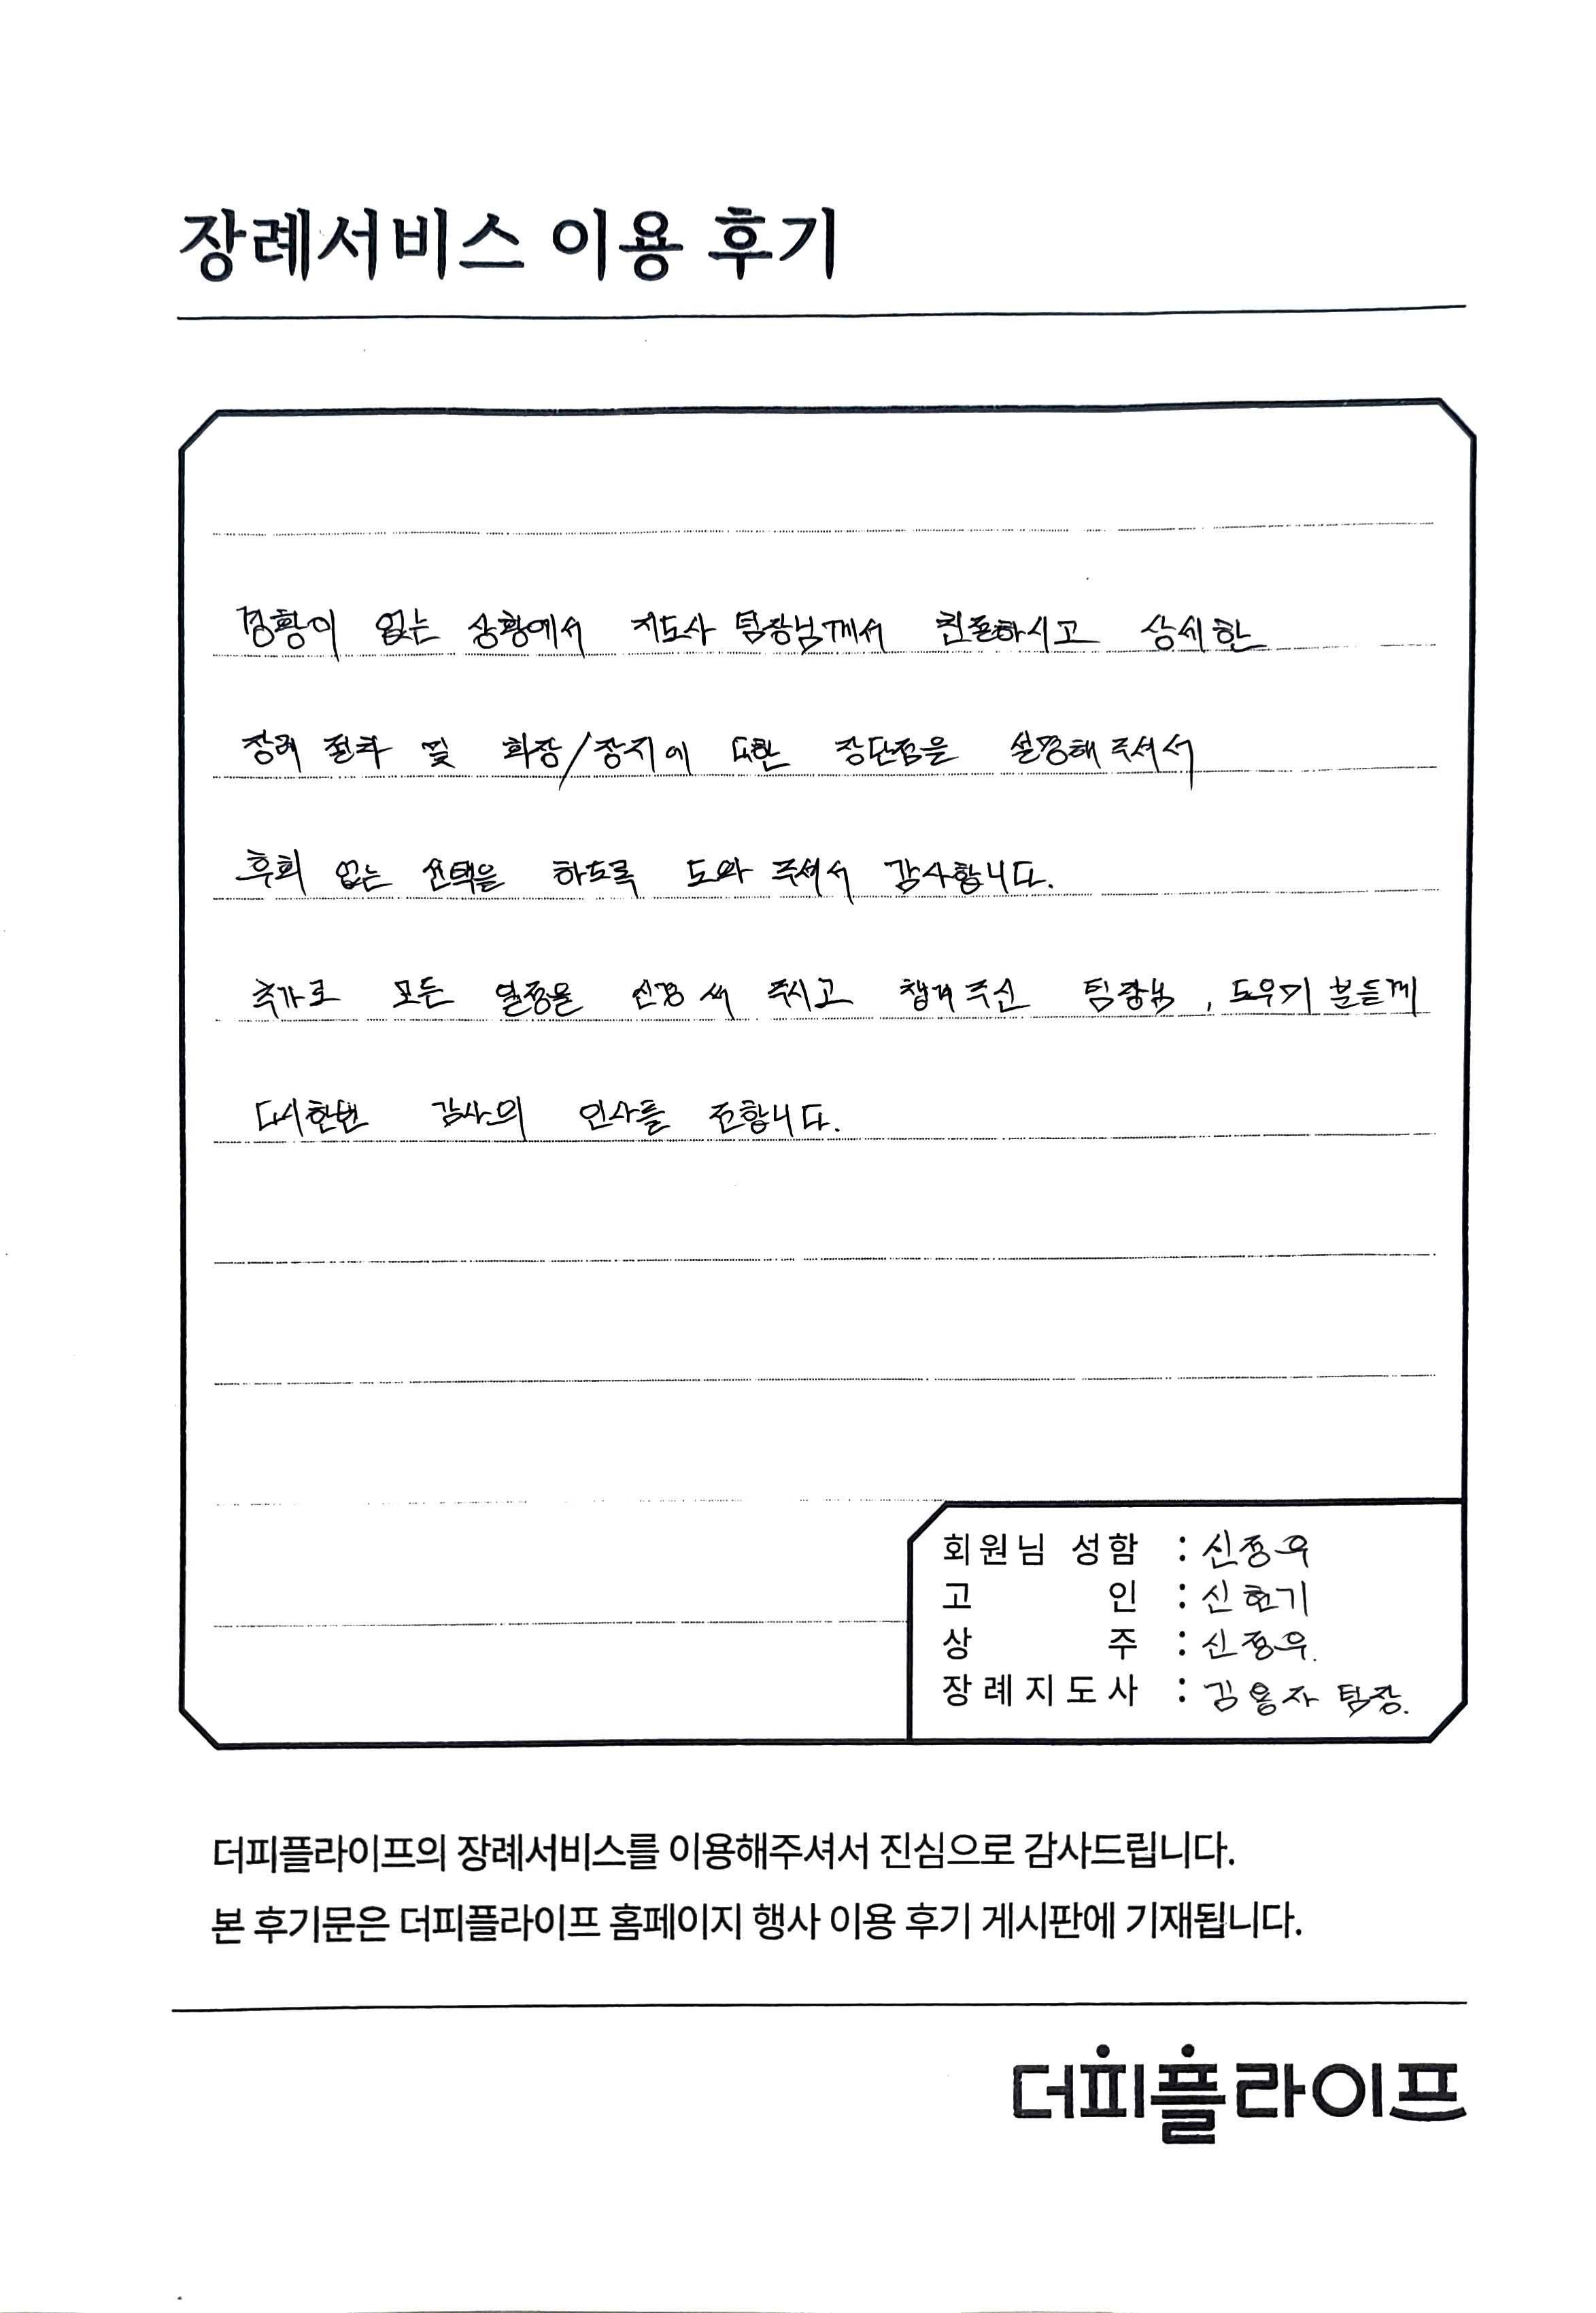 장례서비스 이용 후기
경황이 없는 상황에서 지도사 팀장님께서 친절하시고 상세한
장례 절차 및 화장/장지에 대한 장단점을 설명해 주셔서
후회 없는 선택을 하도록 도와 주셔서 감사합니다.
추가로 모든 일정을 신경 써 주시고 챙겨 주신 팀장님, 도우미 분들께
다시한번 감사의 인사를 전합니다.
회원님 성함 : 신정우
고 인 : 신현기
상 주 : 신정우.
장례지도사 : 김용자 팀장.
더피플라이프의 장례서비스를 이용해주셔서 진심으로 감사드립니다.
본 후기문은 더피플라이프 홈페이지 행사 이용 후기 게시판에 기재됩니다.
더피플라이프